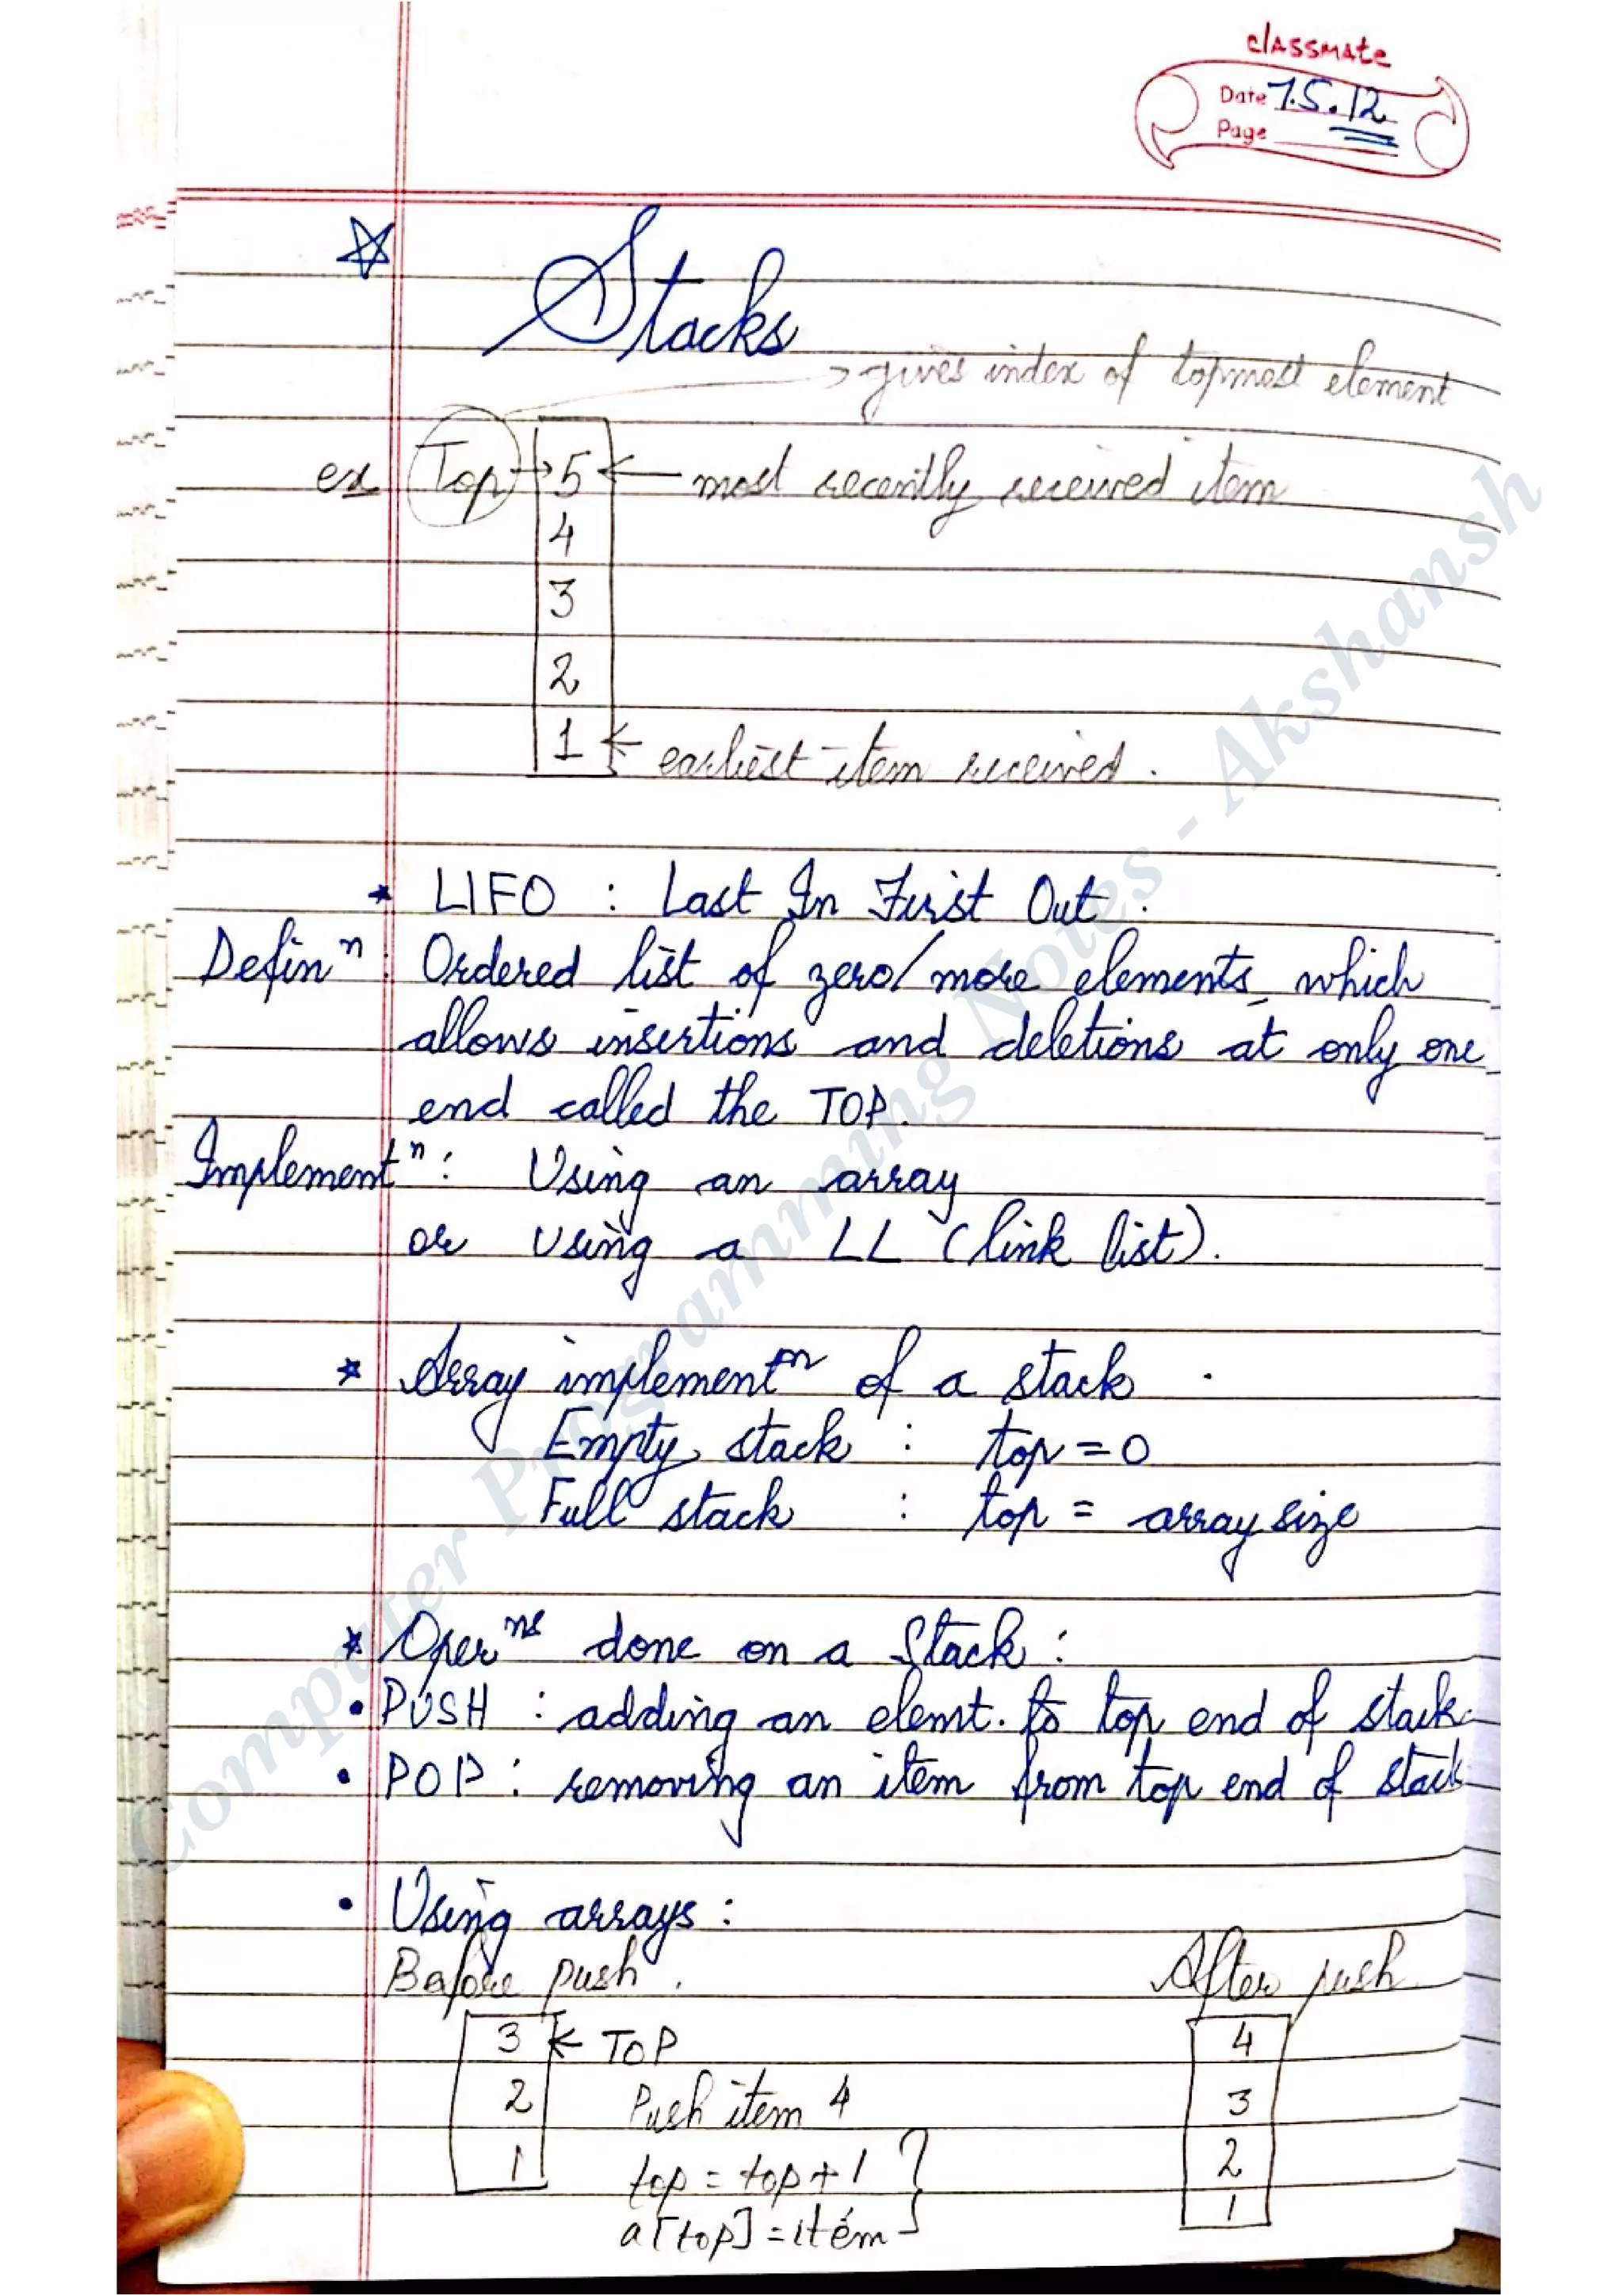 classmate
Date 7.5.12
Page
Stacks
gives index of topmost element
ex Top → 5 ← most recently received item
4
3
2
1 ← earliest item received.
* LIFO : Last In First Out.
Defin^n : Ordered list of zero/more elements which
allows insertions and deletions at only one
end called the TOP.
Implement^n : Using an array
or using a LL (link list).
* Array implement^n of a stack
Empty stack : top = 0
Full stack : top = array size
* Oper^ns done on a Stack :
• PUSH : adding an elemt. to top end of stack
• POP : removing an item from top end of stack
• Using arrays :
Before push. After push
3 ← TOP 4
2 Push item 4 3
1 top = top + 1 2
a[top] = item 1
Computer Programming Notes - Akshansh